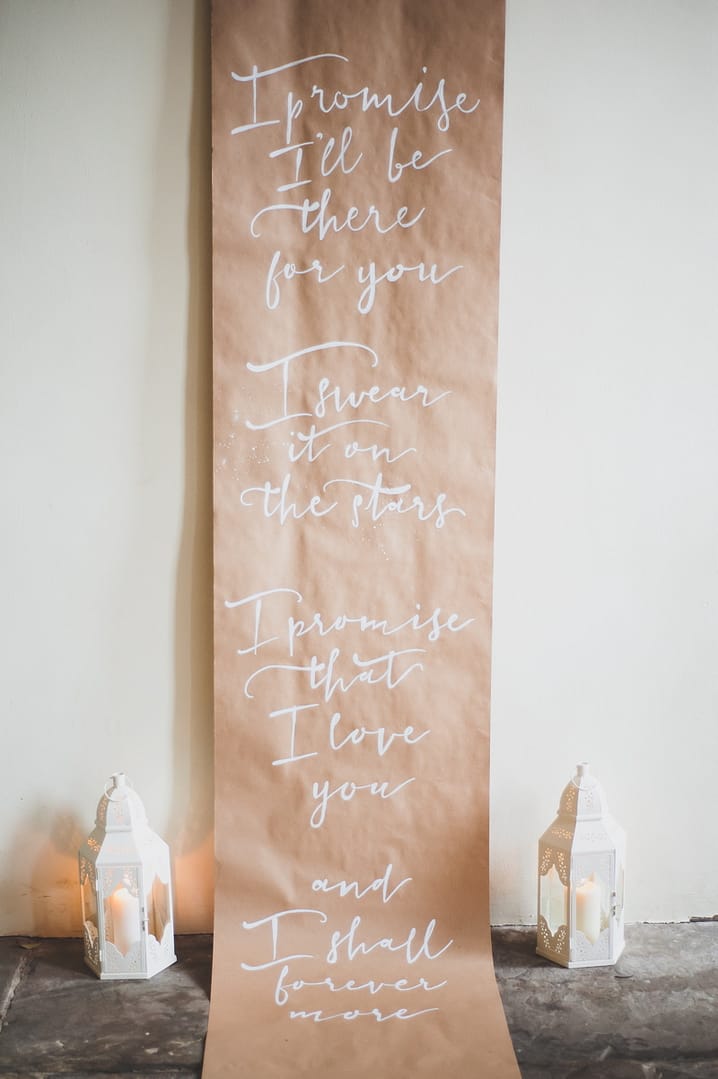 I promise
I'll be
there
for you
I swear
it on
the stars
I promise
that
I love
you
and
I shall
forever
more